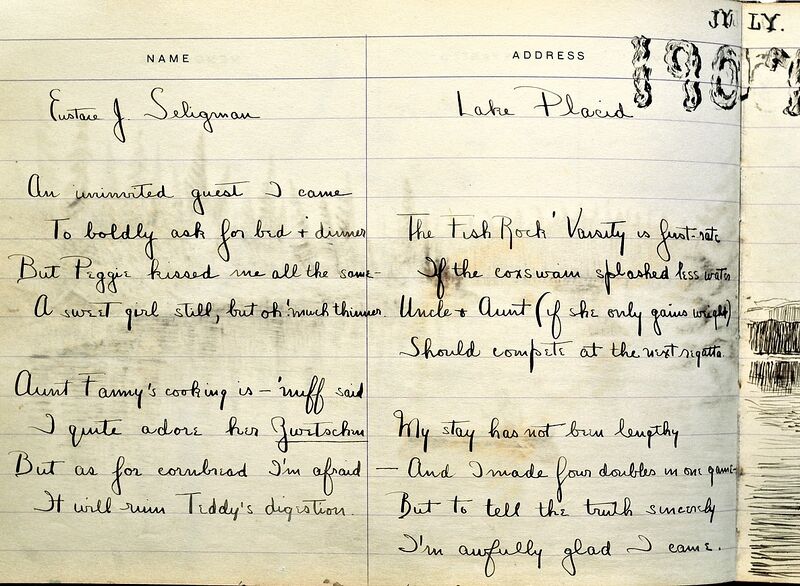 JULY.
1907
NAME
ADDRESS
Eustace J. Seligman
Lake Placid
An uninvited guest I came
To boldly ask for bed + dinner
But Peggie kissed me all the same-
A sweet girl still, but oh 'much thinner.
Aunt Fanny's cooking is - 'nuff said
I quite adore her Zwetschen
But as for cornbread I'm afraid
It will ruin Teddy's digestion.
The Fish Rock 'Varsity is first-rate
If the coxswain splashed less water
Uncle & Aunt (if she only gains weight)
Should compete at the next regatta.
My stay has not been lengthy
— And I made four doubles in one game-
But to tell the truth sincerely
I'm awfully glad I came.